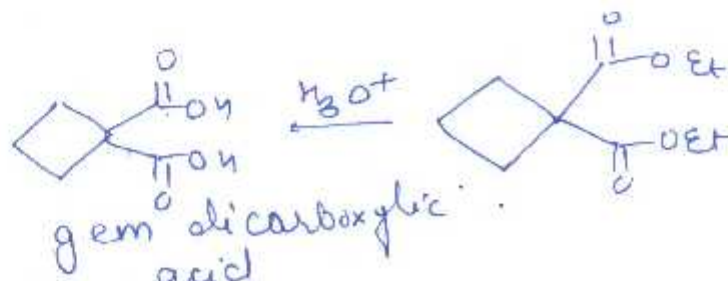 O
O
OEt
OH
H3O+
OH
OEt
O
O
gem dicarboxylic
acid